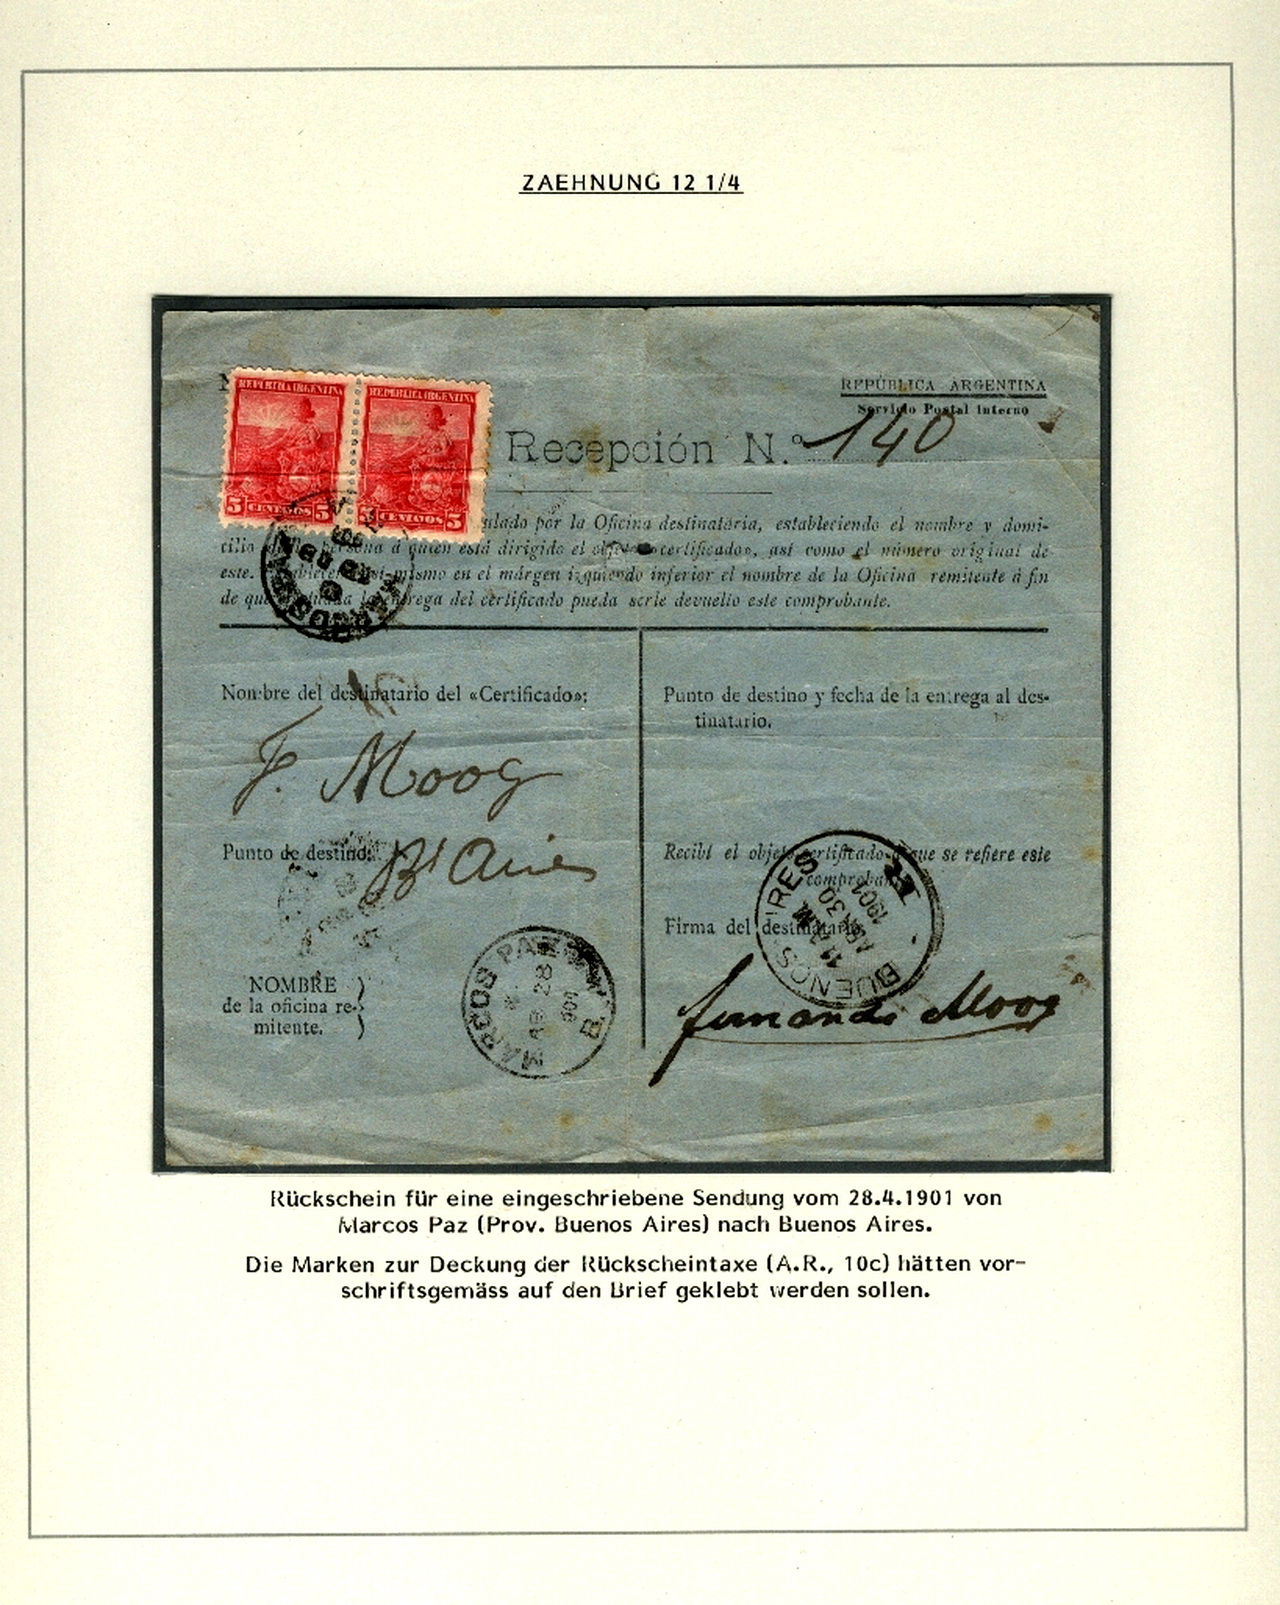 ZAEHNUNG 12 1/4
REPÚBLICA ARGENTINA
Servicio Postal Interno
REPUBLICA ARGENTINA
REPUBLICA ARGENTINA
5 CENTAVOS 5
5 CENTAVOS 5
Recepción N.º 140
por la Oficina destinataria, estableciendo el nombre y domi-
persona á quien está dirigido el objeto «certificado», así como el número original de
este. asi mismo en el márgen izquierdo inferior el nombre de la Oficina remitente á fin
de que la entrega del certificado pueda serle devuelto este comprobante.
Nombre del destinatario del «Certificado»:
F. Moog
Punto de destino: Bs Aires
NOMBRE
de la oficina re-
mitente.
MARCOS PAZ
AB 28
901
Punto de destino y fecha de la entrega al des-
tinatario.
Recibí el objeto certificado á que se refiere este
comproban
Firma del destinatario
BUENOS AIRES
ABR 30
1901
Fernando Moog
Rückschein für eine eingeschriebene Sendung vom 28.4.1901 von
Marcos Paz (Prov. Buenos Aires) nach Buenos Aires.
Die Marken zur Deckung der Rückscheintaxe (A.R., 10c) hätten vor-
schriftsgemäss auf den Brief geklebt werden sollen.